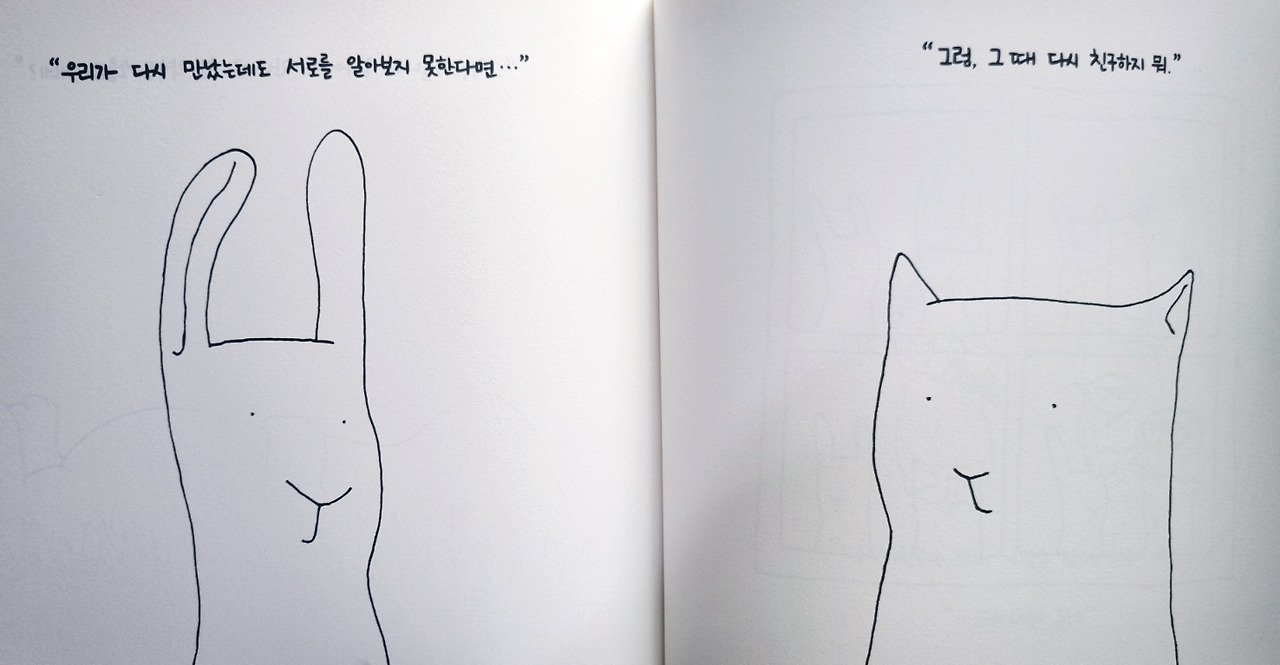 “우리가 다시 만났는데도 서로를 알아보지 못한다면…”
“그럼, 그 때 다시 친구하지 뭐.”